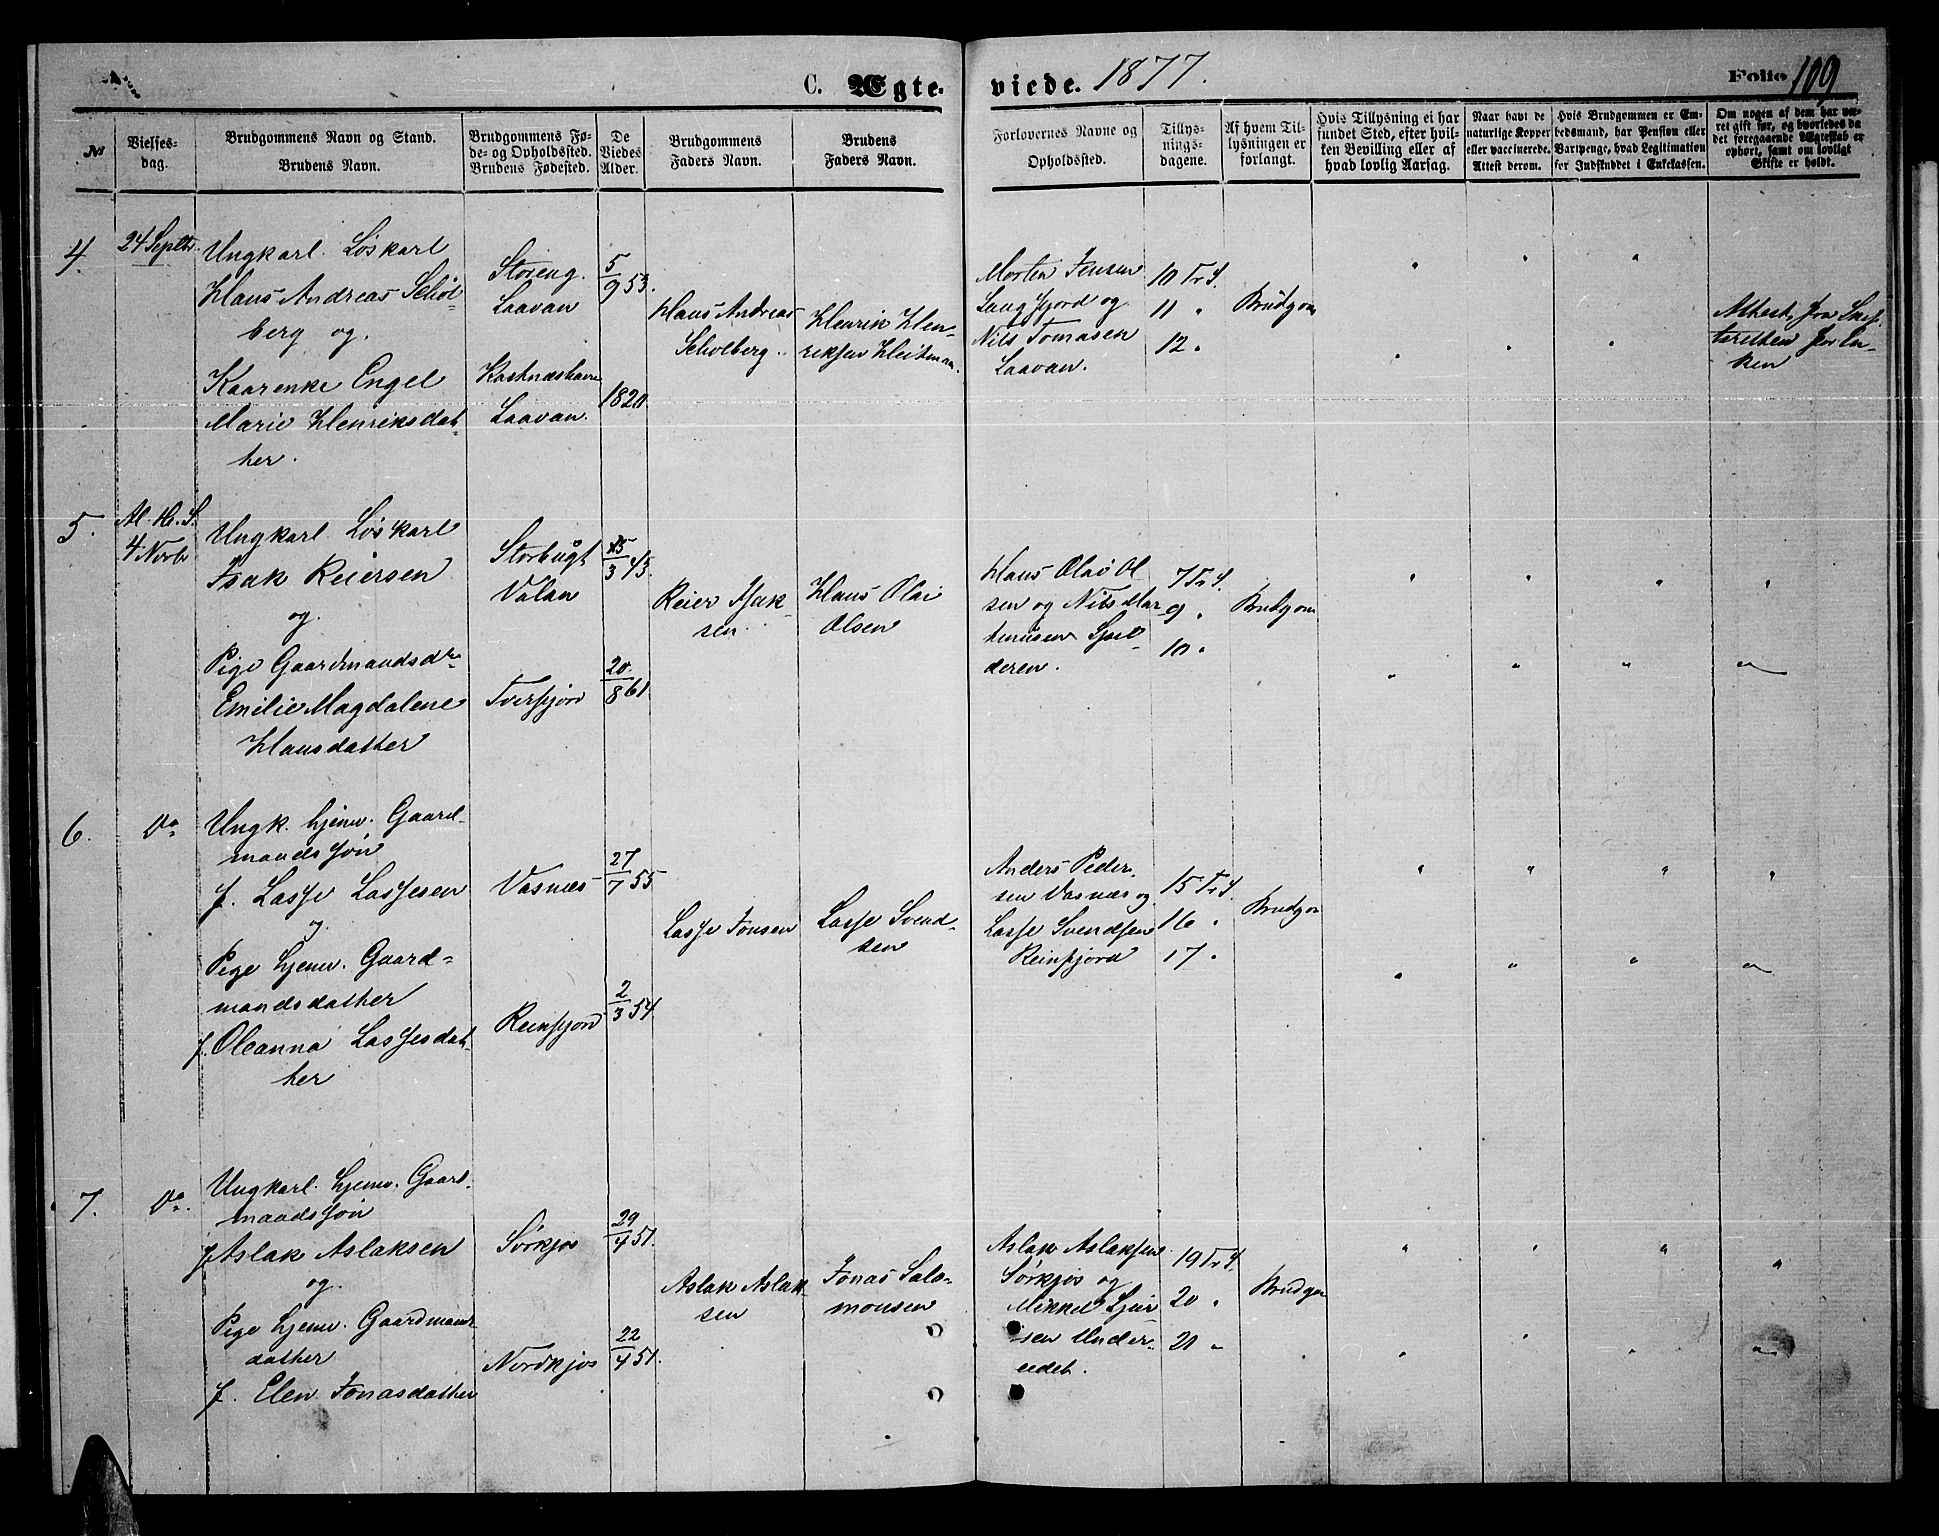 C. Ægte-
viede. 1877.
Folio 109
№
Vielses-
dag.
Brudgommens Navn og Stand.
Brudens Navn.
Brudgommens Fø-
de- og Opholdssted.
Brudens Fødested.
De
Viedes
Alder.
Brudgommens
Faders Navn.
Brudens
Faders Navn.
Forlovernes Navne og
Opholdssted.
Tillys-
nings-
dagene.
Af hvem Til-
lysningen er
forlangt.
Hvis Tillysning ei har
fundet Sted, efter hvil-
ken Bevilling eller af
hvad lovlig Aarsag.
Naar havt de
naturlige Kopper
eller vaccinerede.
Attest derom.
Hvis Brudgommen er Em-
bedsmand, har Pension eller
Vartpenge, hvad Legitimation
for Indskudet i Enkekassen.
Om nogen af dem har væ-
ret gift før, og hvorledes da
det foregaaende Ægteskab er
ophørt, samt om lovligt
Skifte er holdt.
4.
24 Septbr.
Ungkarl. Løskarl
Hans Andreas Schøl-
berg og
Kaarenke Engel
Marie Henriksdat-
ter.
Storeng.
Laavan
Laavan.
5/9 53.
1820
Hans Andreas
Scholberg.
Henrik Hen-
riksen Heitman.
Morten Jensen
Langfjord og
Nils Tomasen
Laavan.
10 Tr. S.
11 "
12 "
Brudgom
Attest fra Skif-
teretten for En-
ken
5.
Al. He. S.
4 Novbr
Ungkarl Løskarl
Isak Reiersen
og
Pige Gaardmandsdr
Emilie Magdalene
Hansdatter
Storbugt
Valan
Tverfjord
15/3 43.
20/8 61.
Reier Isak-
sen.
Hans Olai
Olsen
Hans Olai Ol
sen og Nils Mar
tinusen Spil
deren.
7 Tr. S.
9 "
10 "
Brudgom
6.
Do
Ungk. hjemv. Gaard-
mandssøn
f. Lasse Lassesen
og
Pige hjemv. Gaard-
mandsdatter
f. Oleanna Lassesdat-
ter
Vasnæs
Reinfjord
27/7 55
2/3 54
Lasse Jonsen
Lasse Svend-
sen
Anders Peder-
sen Vasnæs og
Lasse Svendsen
Reinfjord
15 Tr. S.
16 "
17 "
Brudgom
7.
Do.
Ungkarl. hjemv. Gaard-
mandssøn
f. Aslak Aslaksen
og
Pige hjemv. Gaardmands
datter
f. Elen Jonasdatter
Sørkjos
Nordkjos
29/4 51.
22/4 51.
Aslak Aslak
sen
Jonas Salo-
monsen
Aslak Aslaksen
Sørkjos og
Mikkel
sen Under-
eidet.
19 Tr. S.
20 "
21 "
Brudgom